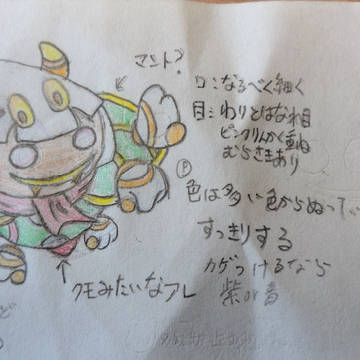 マント?
口:なるべく細く
目:わりとはなれ目
ピンクりんかく重ね
むらさきあり
色は多い色からぬってい
すっきりする
カゲつけるなら
紫or青
クモみたいなフレ
ど